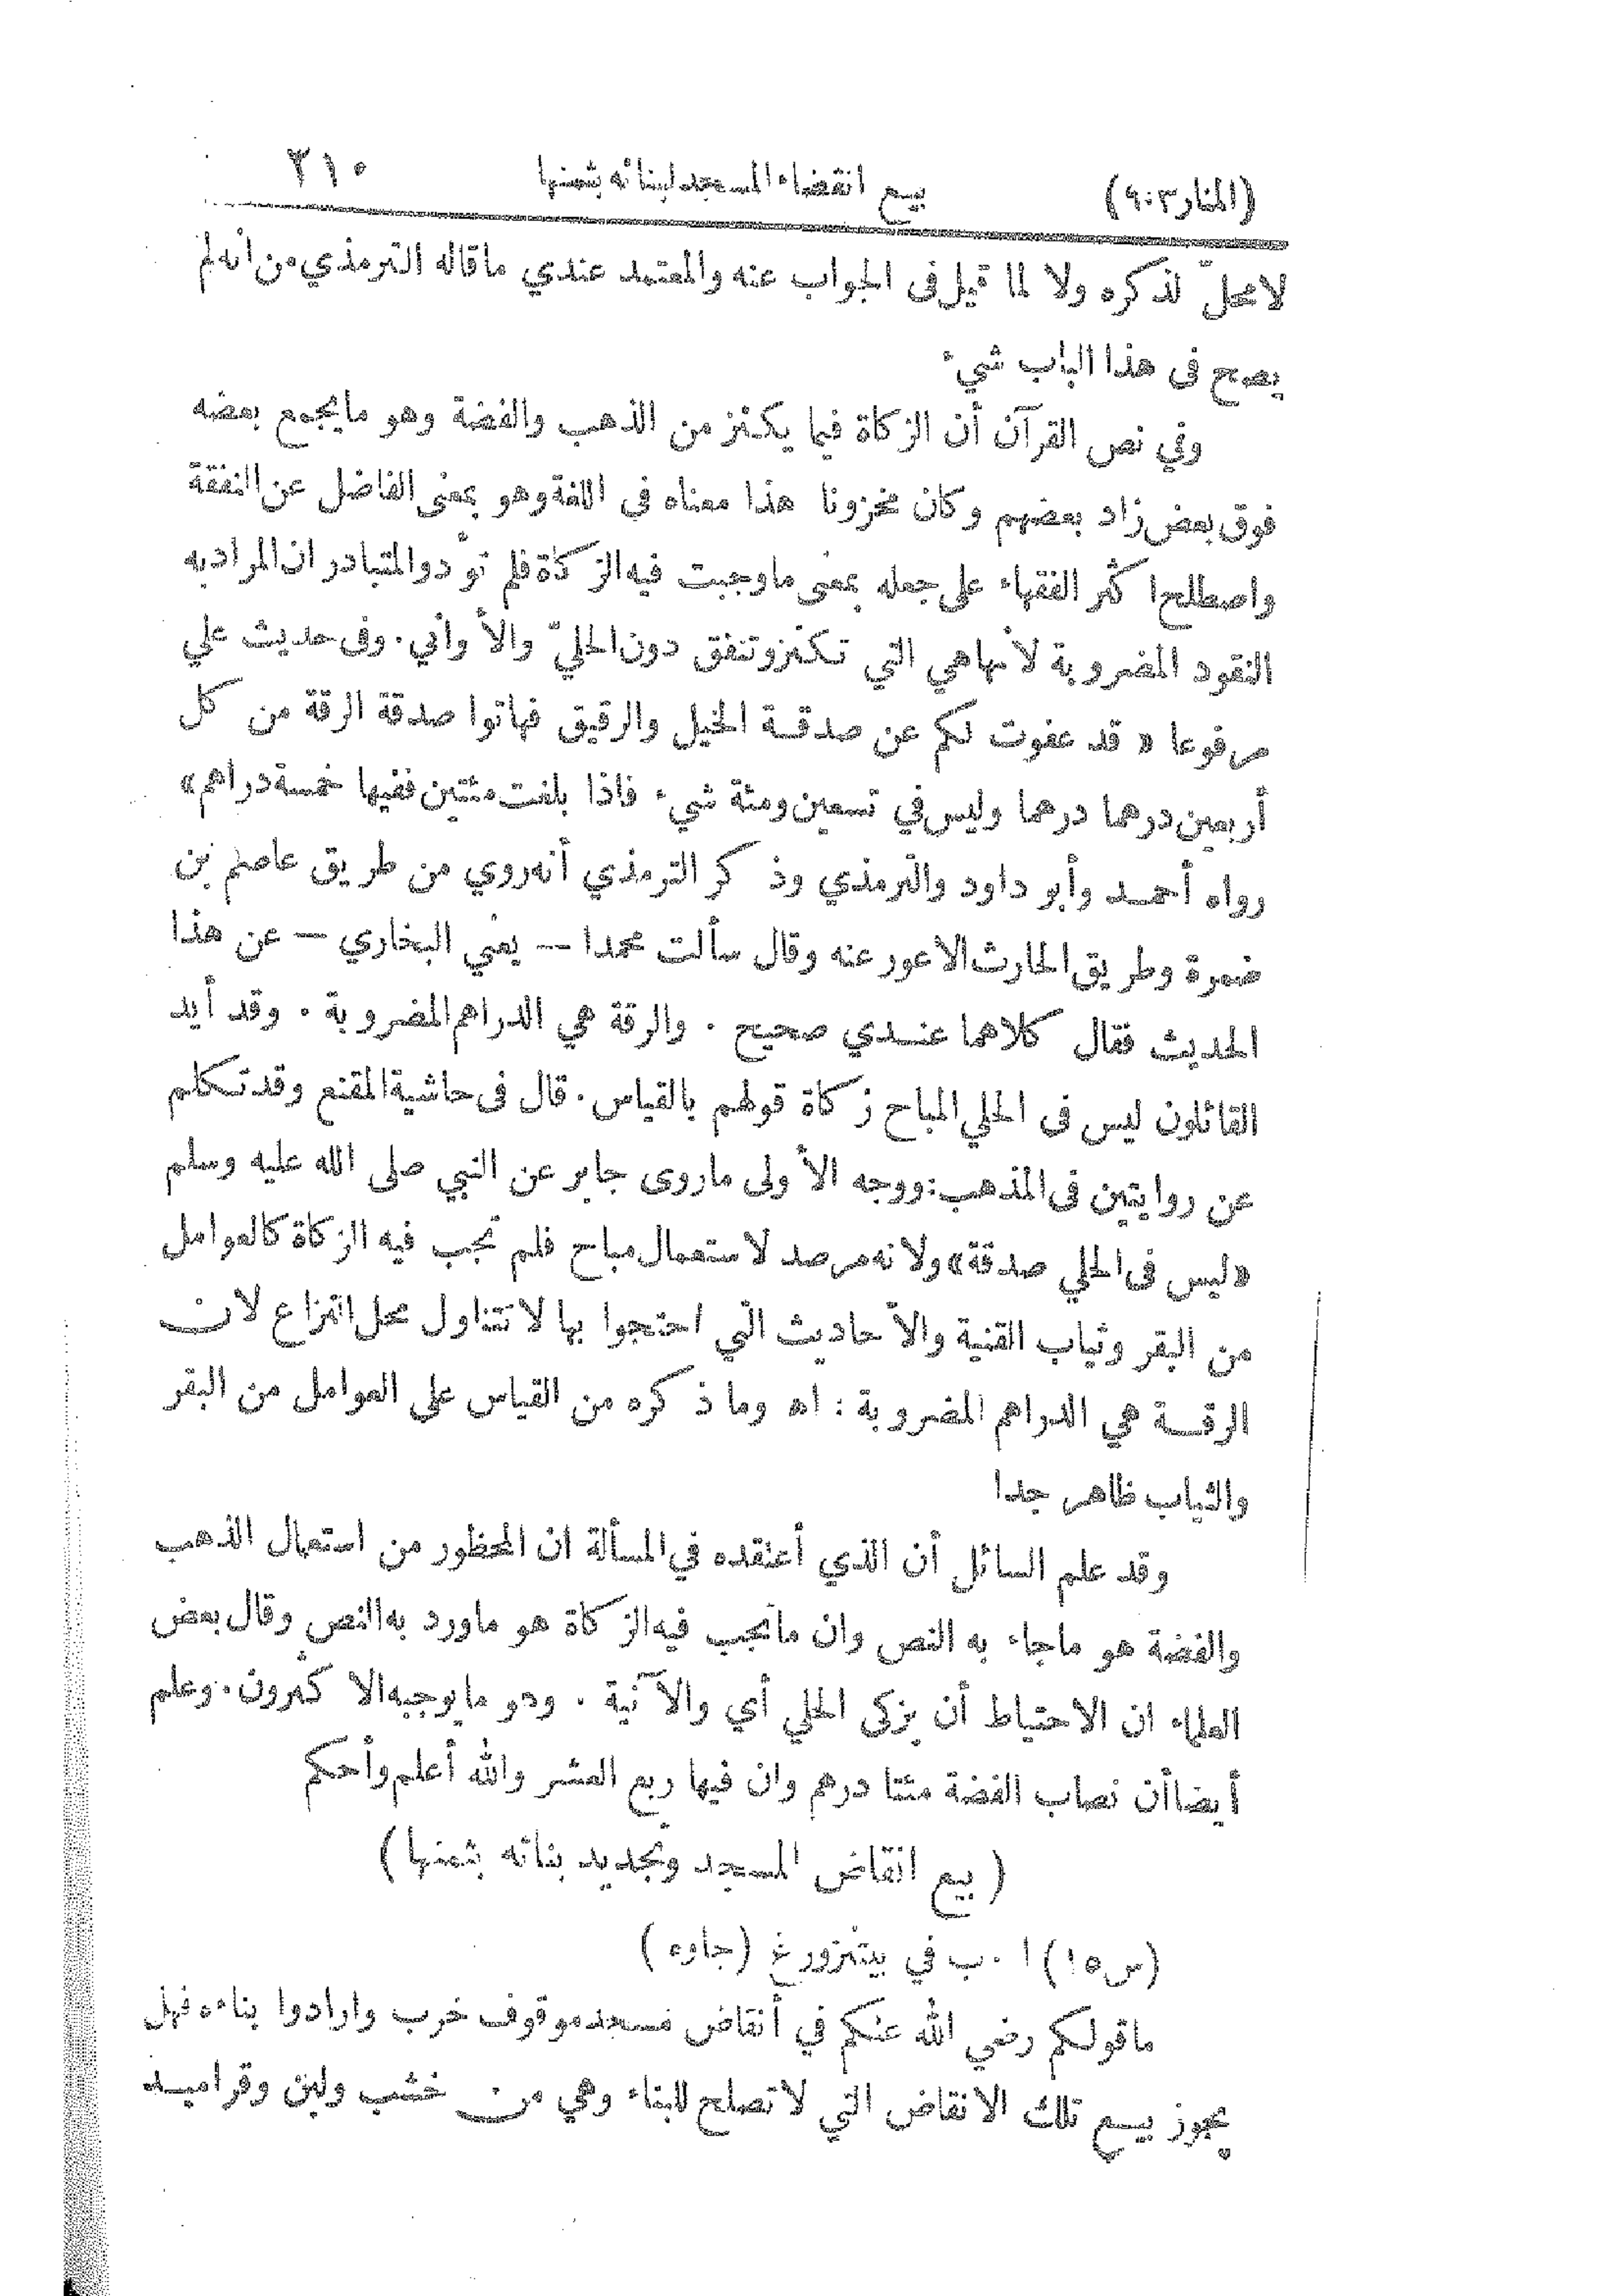 (المنار ٣:٩) بيع انقضاء المسجد لبنائه بثمنها ٢١٠
لا محلّ لذكره ولا لما قيل فى الجواب عنه والمعتمد عندي ما قاله الترمذي من أنه لم
يصح فى هذا الباب شيء
وفي نص القرآن أن الزكاة فيما يكنز من الذهب والفضة وهو ما يجمع بعضه
فوق بعض زاد بعضهم وكان مخزونا هذا معناه في اللغة وهو بمعنى الفاضل عن النفقة
واصطلح اكثر الفقهاء على جعله بمعنى ما وجبت فيه الزكاة فلم تؤد والمتبادر ان المراد به
النقود المضروبة لأنها هي التي تكنز وتنفق دون الحليّ والأواني. وفى حديث علي
مرفوعا « قد عفوت لكم عن صدقة الخيل والرقيق فهاتوا صدقة الرقة من كل
أربعين درهما درهما وليس في تسعين ومئة شيء فاذا بلغت مئتين ففيها خمسة دراهم»
رواه أحمد وأبو داود والترمذي وذكر الترمذي أنه روي من طريق عاصم بن
ضمرة وطريق الحارث الاعور عنه وقال سألت محمدا — يعني البخاري — عن هذا
الحديث فقال كلاهما عندي صحيح . والرقة هي الدراهم المضروبة . وقد أيد
القائلون ليس فى الحلي المباح زكاة قولهم بالقياس. قال فى حاشية المقنع وقد تكلم
عن روايتين فى المذهب: ووجه الأولى ما روى جابر عن النبي صلى الله عليه وسلم
«ليس فى الحلي صدقة» ولانه مرصد لاستعمال مباح فلم تجب فيه الزكاة كالعوامل
من البقر وثياب القنية والأحاديث التي احتجوا بها لا تتناول محل النزاع لان
الرقة هي الدراهم المضروبة : اه وما ذكره من القياس على العوامل من البقر
والثياب ظاهر جدا
وقد علم السائل أن الذي أعتقده في المسألة ان المحظور من استعمال الذهب
والفضة هو ما جاء به النص وان ما تجب فيه الزكاة هو ما ورد به النص وقال بعض
العلماء ان الاحتياط أن يزكى الحلي أي والآنية . وهو ما يوجبه الاكثرون. وعلم
أيضا أن نصاب الفضة مئتا درهم وان فيها ربع العشر والله أعلم وأحكم
( بيع انقاض المسجد وتجديد بنائه بثمنها )
(س١٥) ا . ب في بيتنزورغ (جاوه)
ما قولكم رضي الله عنكم في أنقاض مسجد موقوف خرب وارادوا بناءه فهل
يجوز بيع تلك الانقاض التي لا تصلح للبناء وهي من خشب ولبن وقراميد